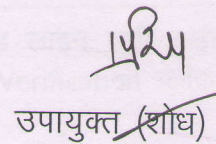 उपायुक्त (शोध)